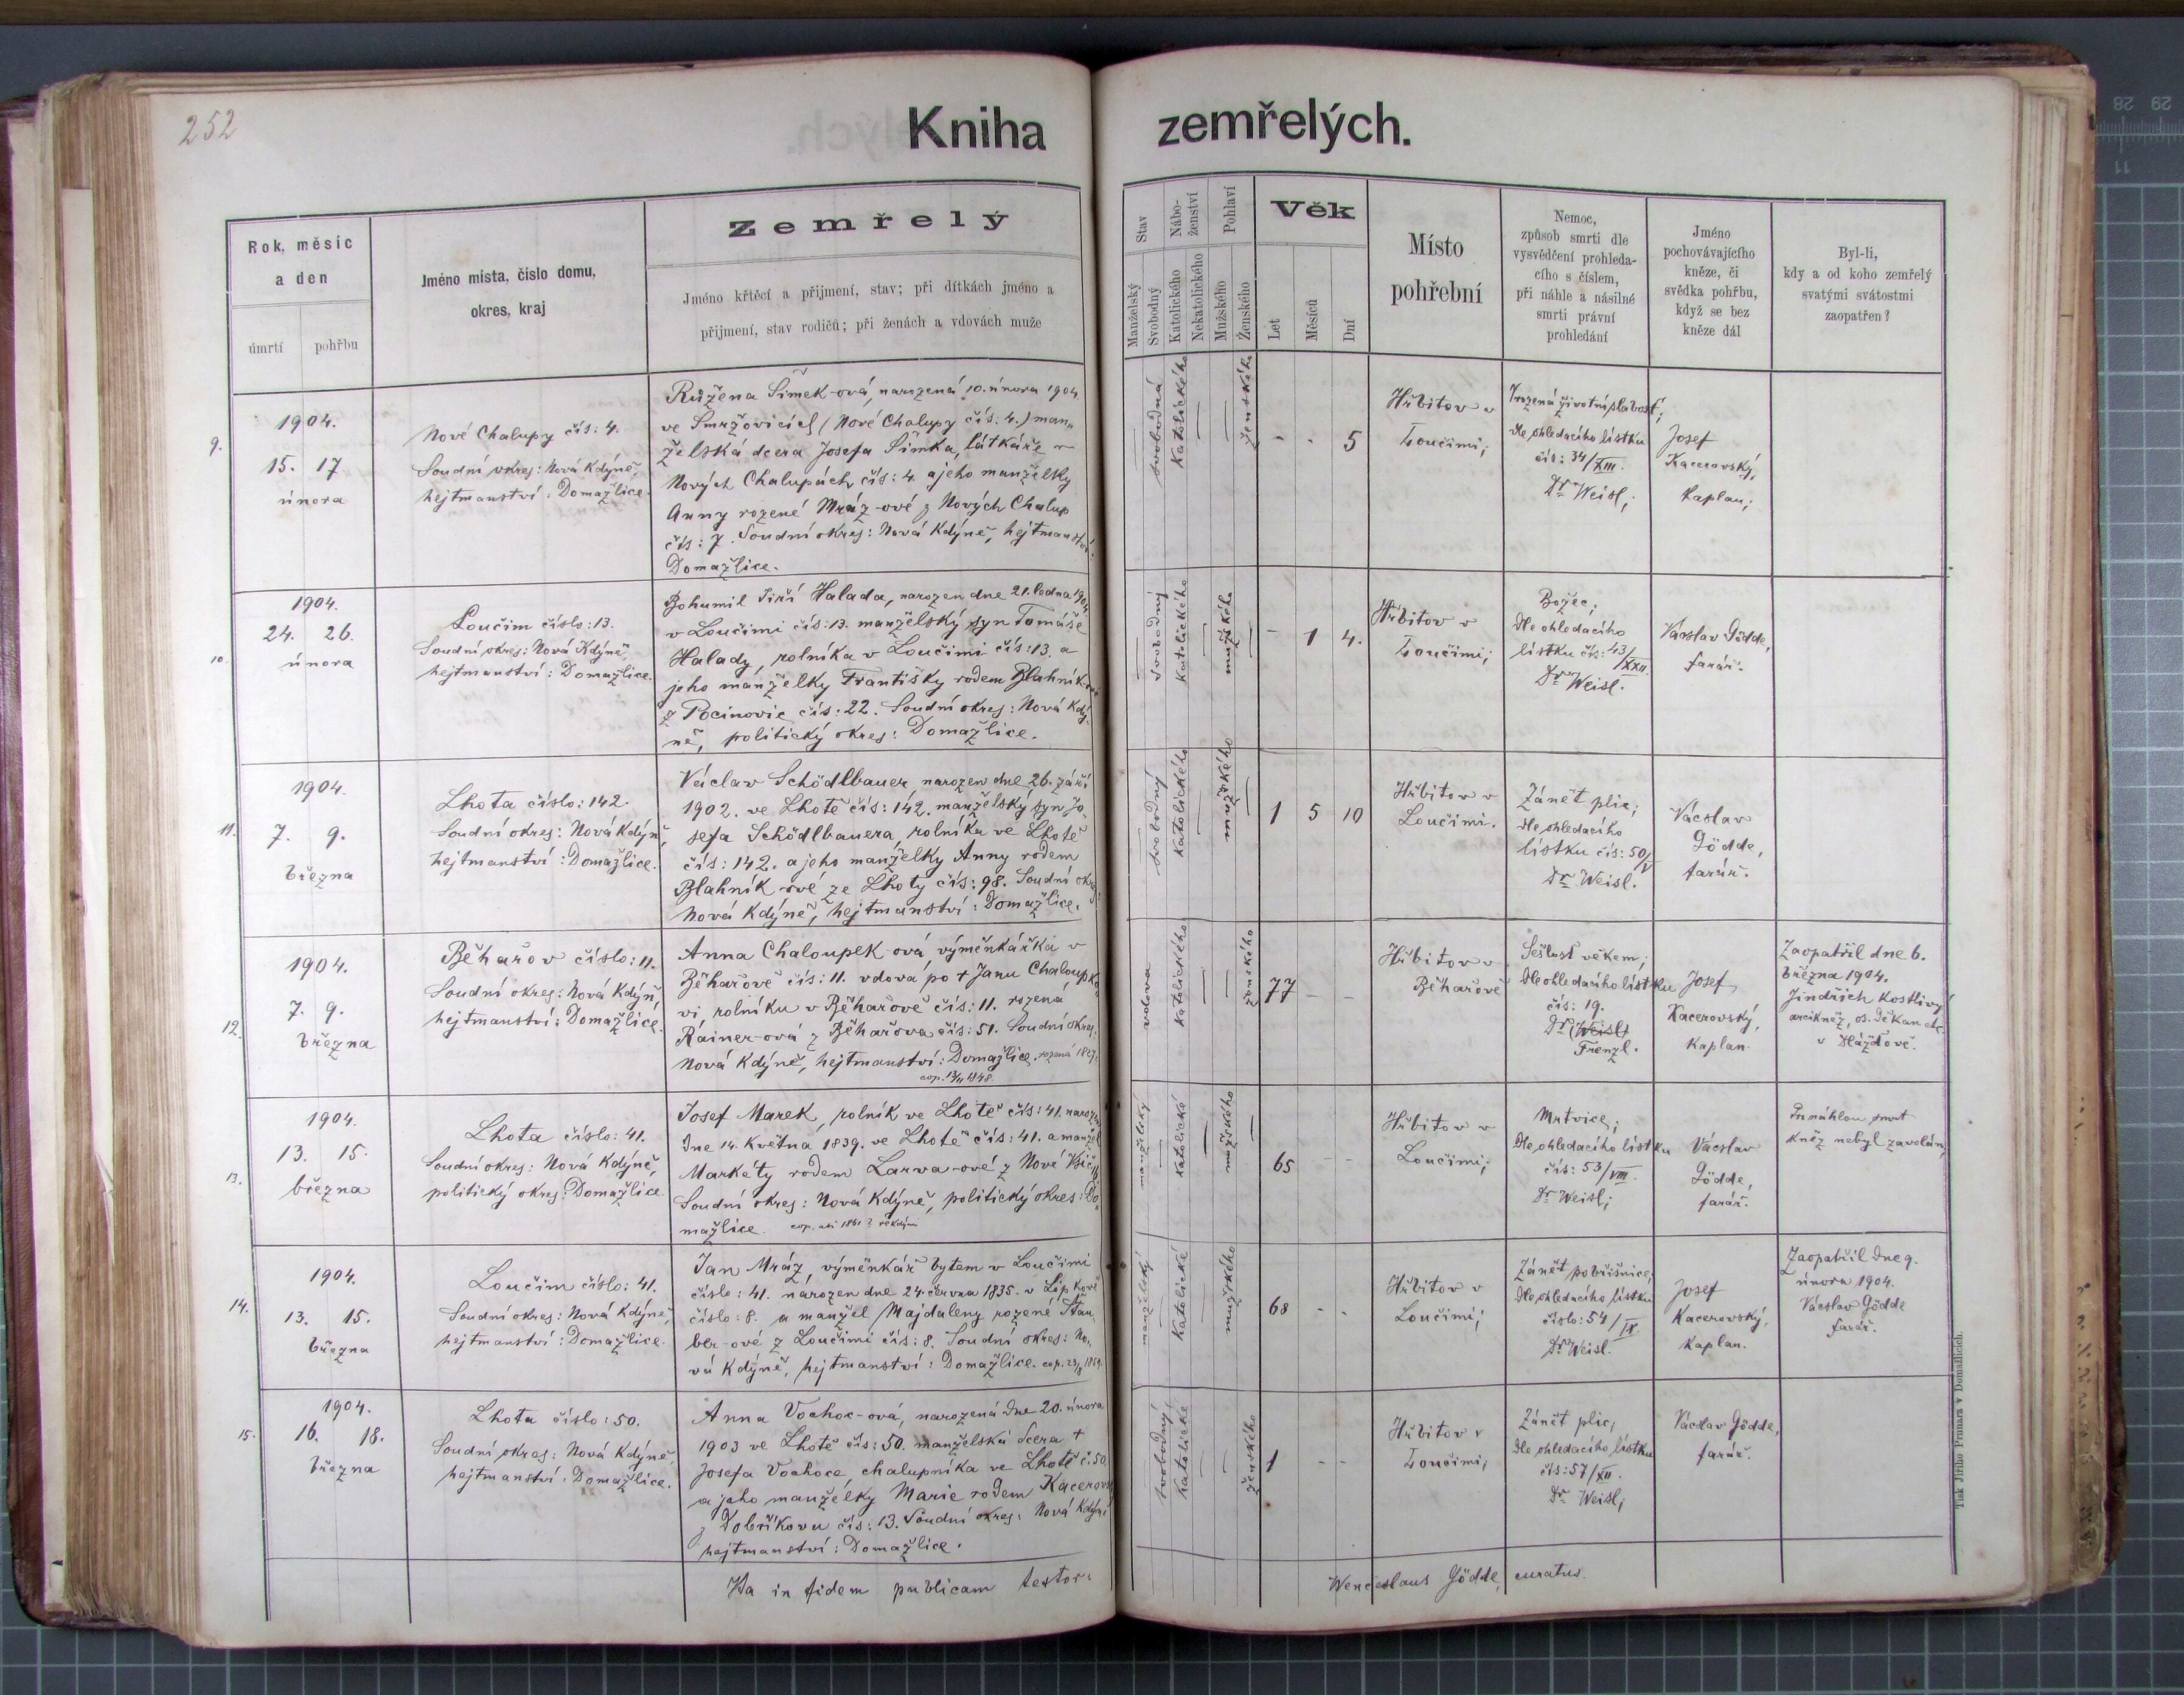 252
Kniha zemřelých.
Rok, měsíc
a den
úmrtí pohřbu
Jméno místa, číslo domu,
okres, kraj
Zemřelý
Jméno křtěcí a přijmení, stav; při dítkách jméno a
přijmení, stav rodičů; při ženách a vdovách muže
Stav
Manželský
Svobodný
Nábo-
ženství
Katolického
Nekatolického
Pohlaví
Mužského
Ženského
Věk
Let
Měsíců
Dní
Místo
pohřební
Nemoc,
způsob smrti dle
vysvědčení prohleda-
cího s číslem,
při náhle a násilné
smrti právní
prohledání
Jméno
pochovávajícího
kněze, či
svědka pohřbu,
když se bez
kněze dál
Byl-li,
kdy a od koho zemřelý
svatými svátostmi
zaopatřen?
9.
1904.
15. 17
února
Nové Chalupy čís: 4.
Soudní okres: Nová Kdýně,
hejtmanství: Domažlice.
Růžena Šimek-ová, narozená 10. února 1904
ve Smržovicích (Nové Chalupy čís: 4.) man„
želská dcera Josefa Šimka, látkáře v
Nových Chalupách čís: 4. a jeho manželky
Anny rozené Mráz-ové z Nových Chalup
čís: 7. Soudní okres: Nová Kdýně, hejtmanství:
Domažlice.
svobodná
Katolického
ženského
- - 5
Hřbitov v
Loučimi;
Vrozená životní slabost;
dle ohledacího lístku
čís: 34/XIII.
Dr Weisl;
Josef
Kacerovský,
kaplan;
10.
1904.
24. 26.
února
Loučim číslo: 13.
Soudní okres: Nová Kdýně,
hejtmanství: Domažlice.
Bohumil Jiří Halada, narozen dne 21. ledna 1904
v Loučimi čís: 13. manželský syn Tomáše
Halady, rolníka v Loučimi čís: 13. a
jeho manželky Františky rodem Blahník-ové
z Pocinovic čís: 22. Soudní okres: Nová Kdý-
ně, politický okres: Domažlice.
svobodný
Katolického
mužského
- 1 4.
Hřbitov v
Loučimi;
Božec;
Dle ohledacího
lístku čís: 43/XXII.
Dr Weisl.
Václav Gödde,
farář.
11.
1904.
7. 9.
března
Lhota číslo: 142.
Soudní okres: Nová Kdýně,
hejtmanství: Domažlice.
Václav Schödlbauer, narozen dne 26. září
1902. ve Lhotě čís: 142. manželský syn Jo-
sefa Schödlbauera, rolníka ve Lhotě
čís: 142. a jeho manželky Anny rodem
Blahník-ové ze Lhoty čís: 98. Soudní okres:
Nová Kdýně, hejtmanství: Domažlice.
svobodný
Katolického
mužského
1 5 10
Hřbitov v
Loučimi.
Zánět plic;
dle ohledacího
lístku čís: 50/V
Dr Weisl.
Václav
Gödde,
farář.
12.
1904.
7. 9.
března
Běhařov číslo: 11.
Soudní okres: Nová Kdýně,
hejtmanství: Domažlice.
Anna Chaloupek-ová, výměnkářka v
Běhařově čís: 11. vdova po + Janu Chaloupko
vi, rolníku v Běhařově čís: 11. rozená
Rainer-ová z Běhařova čís: 51. Soudní okres:
Nová Kdýně, hejtmanství: Domažlice. rozená 1827.
cop. 13/11 1848.
vdova
Katolického
ženského
77 - -
Hřbitov v
Běhařově
Sešlost věkem;
Dle ohledacího lístku
čís: 19.
Dr (Weisl)
Frenzl.
Josef
Kacerovský,
Kaplan.
Zaopatřil dne 6.
března 1904.
Jindřich Kostlivý
arcikněz, os. děkan etc.
v Dlážďově.
13.
1904.
13. 15.
března
Lhota číslo: 41.
Soudní okres: Nová Kdýně,
politický okres: Domažlice.
Josef Marek, rolník ve Lhotě čís: 41. narozen
dne 14. Května 1839. ve Lhotě čís: 41. a manžel
Markéty rodem Larva-ové z Nové
Soudní okres: Nová Kdýně, politický okres: Do„
mažlice. cop. asi 1861?
manželský
katolické
mužského
65 - -
Hřbitov v
Loučimi;
Mrtvice;
Dle ohledacího lístku
čís: 53/VIII.
Dr Weisl;
Václav
Gödde,
farář.
Pro náhlou smrt
kněz nebyl zavolán;
14.
1904.
13. 15.
března
Loučim číslo: 41.
Soudní okres: Nová Kdýně,
hejtmanství: Domažlice.
Jan Mráz, výměnkář bytem v Loučimi
číslo: 41. narozen dne 24. června 1835. v Libkově
číslo: 8. a manžel Majdaleny rozené Stau„
ber-ové z Loučimi čís: 8. Soudní okres: No„
vá Kdýně, hejtmanství: Domažlice. cop. 23/8 1859.
manželský
Katolické
mužského
68 - -
Hřbitov v
Loučimi;
Zánět pobřišnice;
Dle ohledacího lístku
číslo: 54/IX.
Dr Weisl.
Josef
Kacerovský,
Kaplan.
Zaopatřil dne 9.
února 1904.
Václav Gödde
farář.
15.
1904.
16. 18.
března
Lhota číslo: 50.
Soudní okres: Nová Kdýně,
hejtmanství: Domažlice.
Anna Vochoc-ová, narozená dne 20. února
1903 ve Lhotě čís: 50. manželská dcera +
Josefa Vochoce, chalupníka ve Lhotě č. 50
a jeho manželky Marie rodem Kacerovs
z Dobříkova čís: 13. Soudní okres: Nová Kdýně
hejtmanství: Domažlice.
svobodný
Katolické
ženského
1 - -
Hřbitov v
Loučimi;
Zánět plic;
Dle ohledacího lístku
čís: 57/XII.
Dr Weisl;
Václav Gödde,
farář.
Ita in fidem publicam testor:
Wenceslaus Gödde, curatus.
Tisk Jiřího Prunara v Domažlicích.
28 29
11